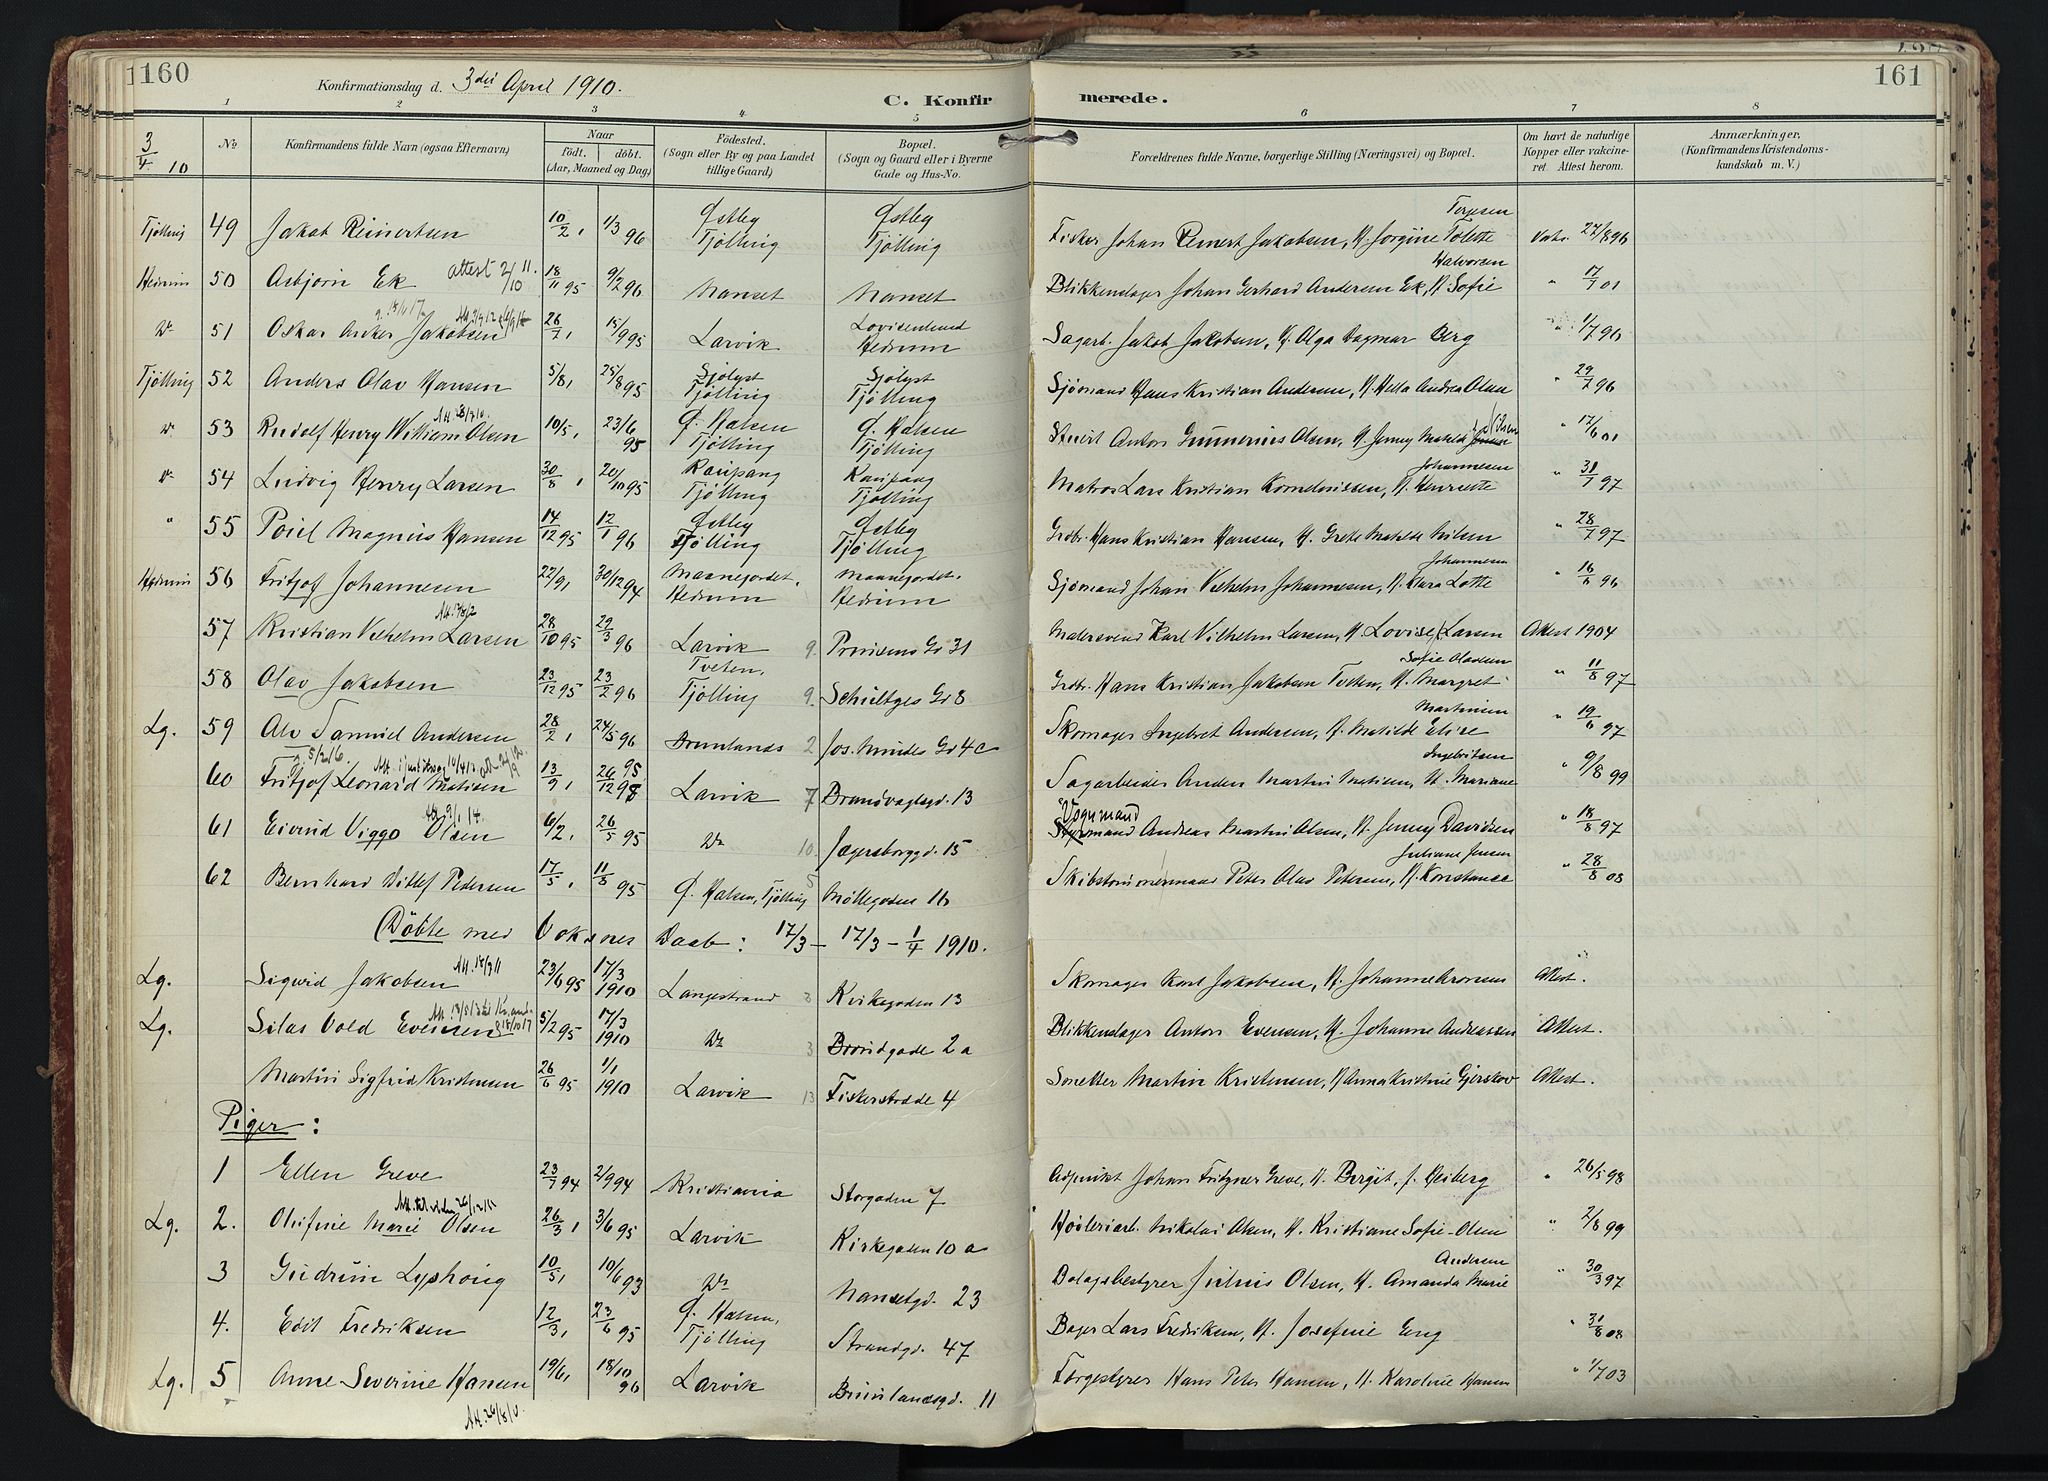 160
Konfirmationsdag d. 3die April 1910.
C. Konfir
merede.
161
3/4 10
1 2 3 4 5 6 7 8
No
Konfirmandens fulde Navn (ogsaa Efternavn)
Naar
födt. döbt.
(Aar, Maaned og Dag)
Födested.
(Sogn eller By og paa Landet tillige Gaard)
Bopæl.
(Sogn og Gaard eller i Byerne Gade og Hus-No.
Forældrenes fulde Navne, borgerlige Stilling (Næringsvei) og Bopæl.
Om havt de naturlige Kopper eller vakcineret. Attest herom.
Anmærkninger.
(Konfirmandens Kristendomskundskab m. V.)
Tjölling 49 Jakob Reinertsen 10/2, 1/3 96 Østby Tjölling Østby Tjölling Fisker Johan Reinert Jakobsen, H. Jorgine Tolette Terjesen Vaks. 27/8 96
Hedrum 50 Asbjörn Ek attest 2/10 11. 18/11 95 9/2 96 Nanset Nanset Blikkenslager Johan Gerhard Andersen Ek, H. Sofie Halvorsen " 17/7 01
Do 51 Oskar Anker Jakobsen 26/7, 15/9 95 Larvik Lovisenlund Hedrum Sagarb. Jakob Jakobsen, H. Olga Dagmar Berg " 1/7 96
Tjölling 52 Anders Olav Hansen 5/8, 25/8 95 Sjölyst Tjölling Sjölyst Tjölling Sjömand Hans Kristian Andersen, H. Hella Andrea Olsen " 29/7 96
Do 53 Rudolf Henry William Olsen 10/5, 23/6 95 Ø. Halsen Tjölling Ø. Halsen Tjölling Stuert Anton Gunnerius Olsen, H. Jenny Matilde " 17/6 01
Do 54 Ludvig Henry Larsen 30/8, 20/10 95 Kaupang Tjölling Kaupang Tjölling Matros Lars Kristian Kornelinssen, H. Henriette Johannesen " 31/7 97
" 55 Poul Magnus Hansen 14/12 95 12/1 96 Østby Tjölling Østby Tjölling Grdbr. Hans Kristian Hansen, H. Grete Matilde Nilsen " 28/7 97
Hedrum 56 Fritjof Johannesen 22/9, 30/12 94 Maanejordet. Hedrum Maanejordet. Hedrum Sjömand Johan Vilhelm Johannesen, H. Klara Lotte Johannesen " 16/6 96
57 Kristian Vilhelm Larsen 28/10 95 29/3 96 Larvik 9. Prinsens Gd 31 Malersvend Karl Vilhelm Larsen, H. Lovise Larsen Attest 1904
58 Olav Jakobsen 23/12 95 23/2 96 Tveten, Tjölling 9. Schultzes Gd 8 Grdbr. Hans Kristian Jakobsen Tveten, H. Margret Sofie Olavsen " 11/8 97
Lg. 59 Alv Samuel Andersen 28/2, 24/5 96 Brunlands 2 Jos. Mindes Gd 4c Skomager Ingebret Andersen, H. Matilde Elise Martinsen " 19/6 97
60 Fritjof Leonard Matisen 13/9, 26/12 95 Larvik 7 Brandvagtsgd. 13 Sagarbeider Anders Martin Matisen, H. Mariane Ingebritsen " 9/8 99
61 Eivind Viggo Olsen 6/2, 26/5 95 Do 10. Jægersborggd. 15 Vognmand Andreas Martin Olsen, H. Jenny Davidsen " 18/8 97
62 Bernhard Ditlef Pedersen 17/5, 11/8 95 Ø. Halsen, Tjölling 5 Möllegaden 16 Skibstömmermand Peter Olav Petersen, H. Konstance Juliane Jensen " 28/8 08
Döbte med Voksnes Daab: 17/3 — 17/3 — 1/4 1910.
Lg. Sigurd Jakobsen Att. 18/3 11 23/6 95 17/3 1910 Langestrand 3 Kvikegaden 13 Skomager Karl Jakobsen, H. Johanne Aronsen Attest.
Lg. Silas Vold Evensen 5/2 95 17/3 1910 Do 3 Brondgade 2a Blikkenslager Anton Evensen, H. Johanne Andreassen Attest.
Martin Sigfrid Kristensen 26/6 95 1/1 1910 Larvik 13 Fiskerstræde 4 Snetter Martin Kristensen, H. Anna Kristine Gjerskov Attest.
Piger:
1 Ellen Greve 23/7 94 2/9 94 Kristiania Storgaden 7 Adjunkt Johan Fritzner Greve, H. Bergit, f. Heiberg " 26/5 98
Lg. 2. Olufine Marie Olsen 26/3, 3/6 95 Larvik Kirkegaden 10 a Höileriarb. Nikolai Olsen, H. Kristiane Sofie Olsen " 2/8 99
3 Gudrun Lyshoug 10/5, 10/6 93 Do Nansetgd. 23 Bolagsbestyrer Julius Olsen, H. Amanda Marie Andersen " 30/3 97
4. Edit Fredriksen 12/3, 23/6 95 Ø. Halsen, Tjölling Strandgd. 47 Bager Lars Fredriksen, H. Josefine Eng " 31/8 08
Lg. 5 Anne Severine Hansen 19/6, 18/10 96 Larvik Brunlanesgd. 11 Færgestyrer Hans Peter Hansen, H. Karoline Hansen " 1/7 03
Att. 26/8 10.